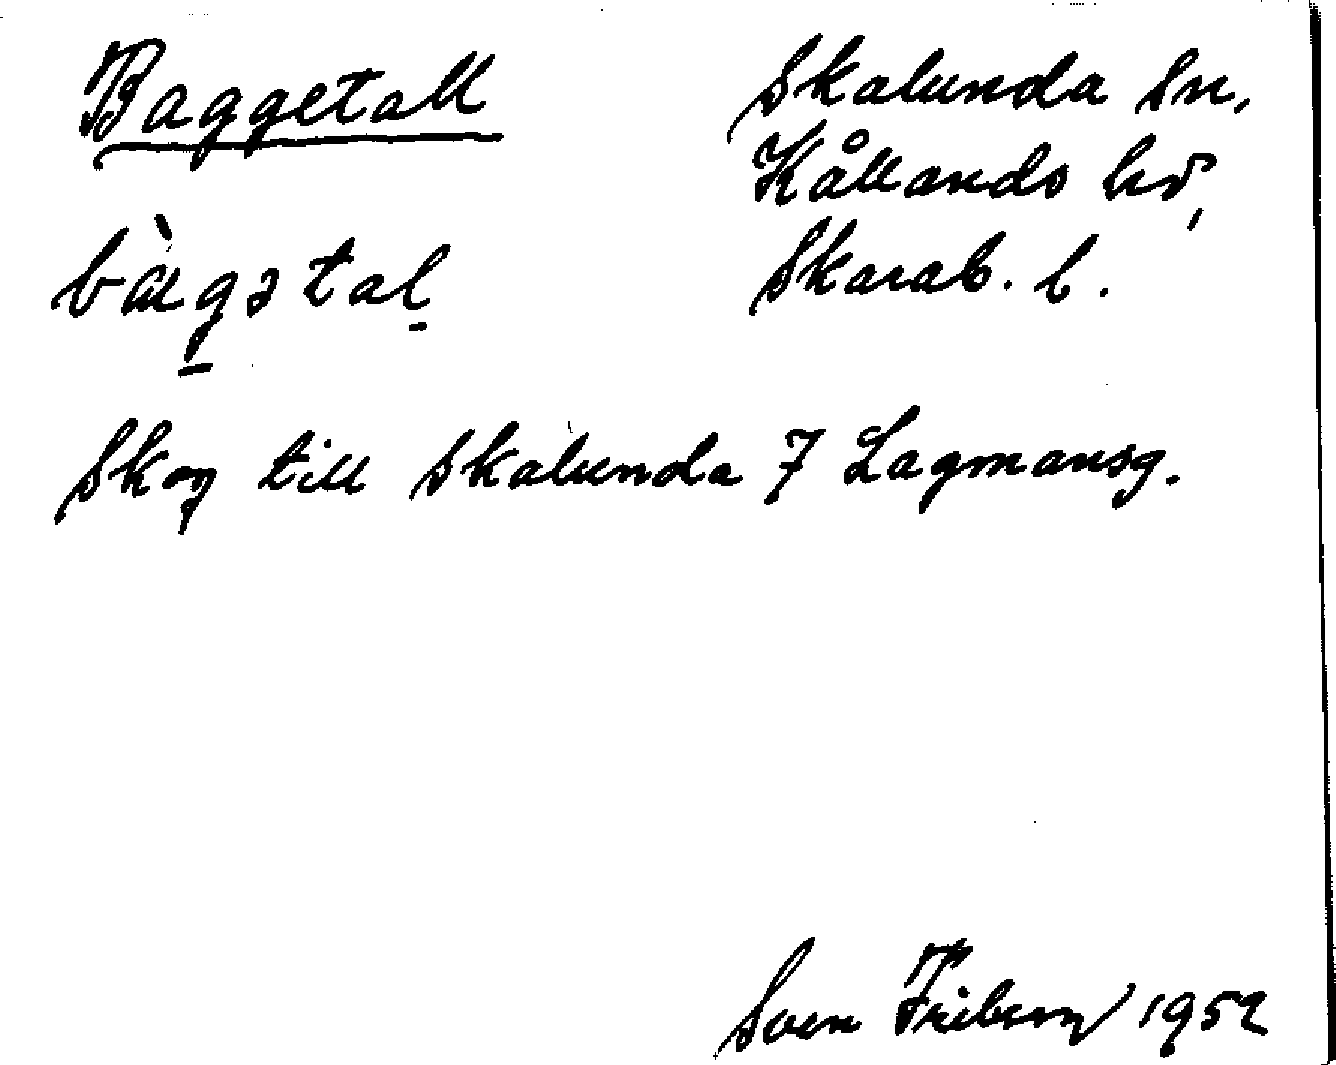 Baggetall
Skalunda sn,
Kållands hd,
bàgətal
Skarab. l.
Skog till Skalunda 7 Lagmansg.
Sven Friberg 1952